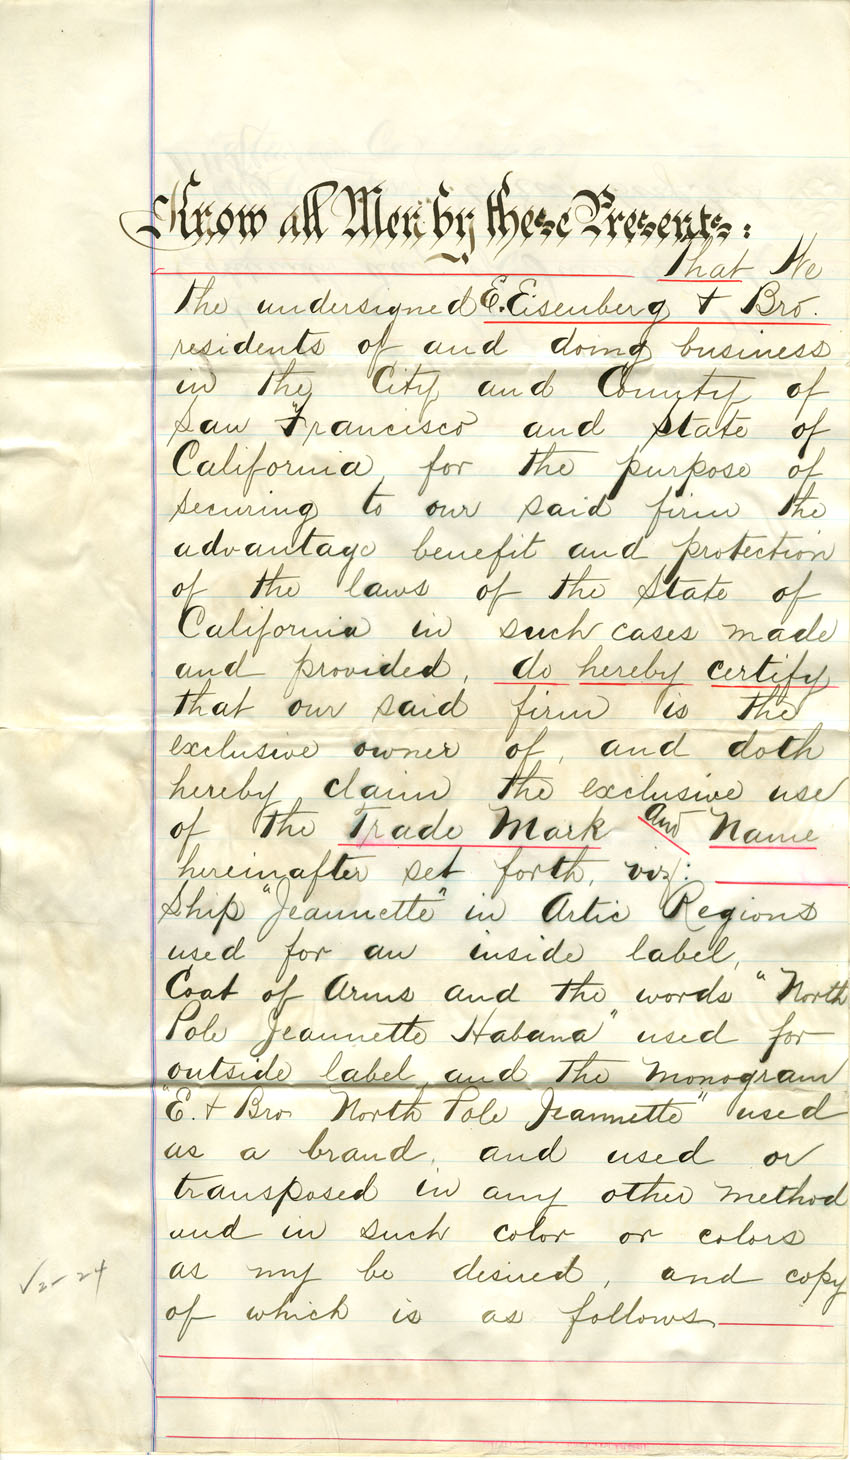 Know all Men by these Presents:
That We
the undersigned E. Eisenberg & Bro.
residents of and doing business
in the City and County of
San Francisco and State of
California, for the purpose of
securing to our said firm the
advantage benefit and protection
of the laws of the State of
California in such cases made
and provided, do hereby certify
that our said firm is the
exclusive owner of, and doth
hereby claim the exclusive use
of the Trade Mark and Name
hereinafter set forth, viz:
Ship "Jeannette" in Artic Regions
used for an inside label,
Coat of Arms and the words "North
Pole Jeannette Habana" used for
outside label, and the monogram
"E. & Bro. North Pole Jeannette" used
as a brand, and used or
transposed in any other method
and in such color or colors
as my be desired, and copy
of which is as follows